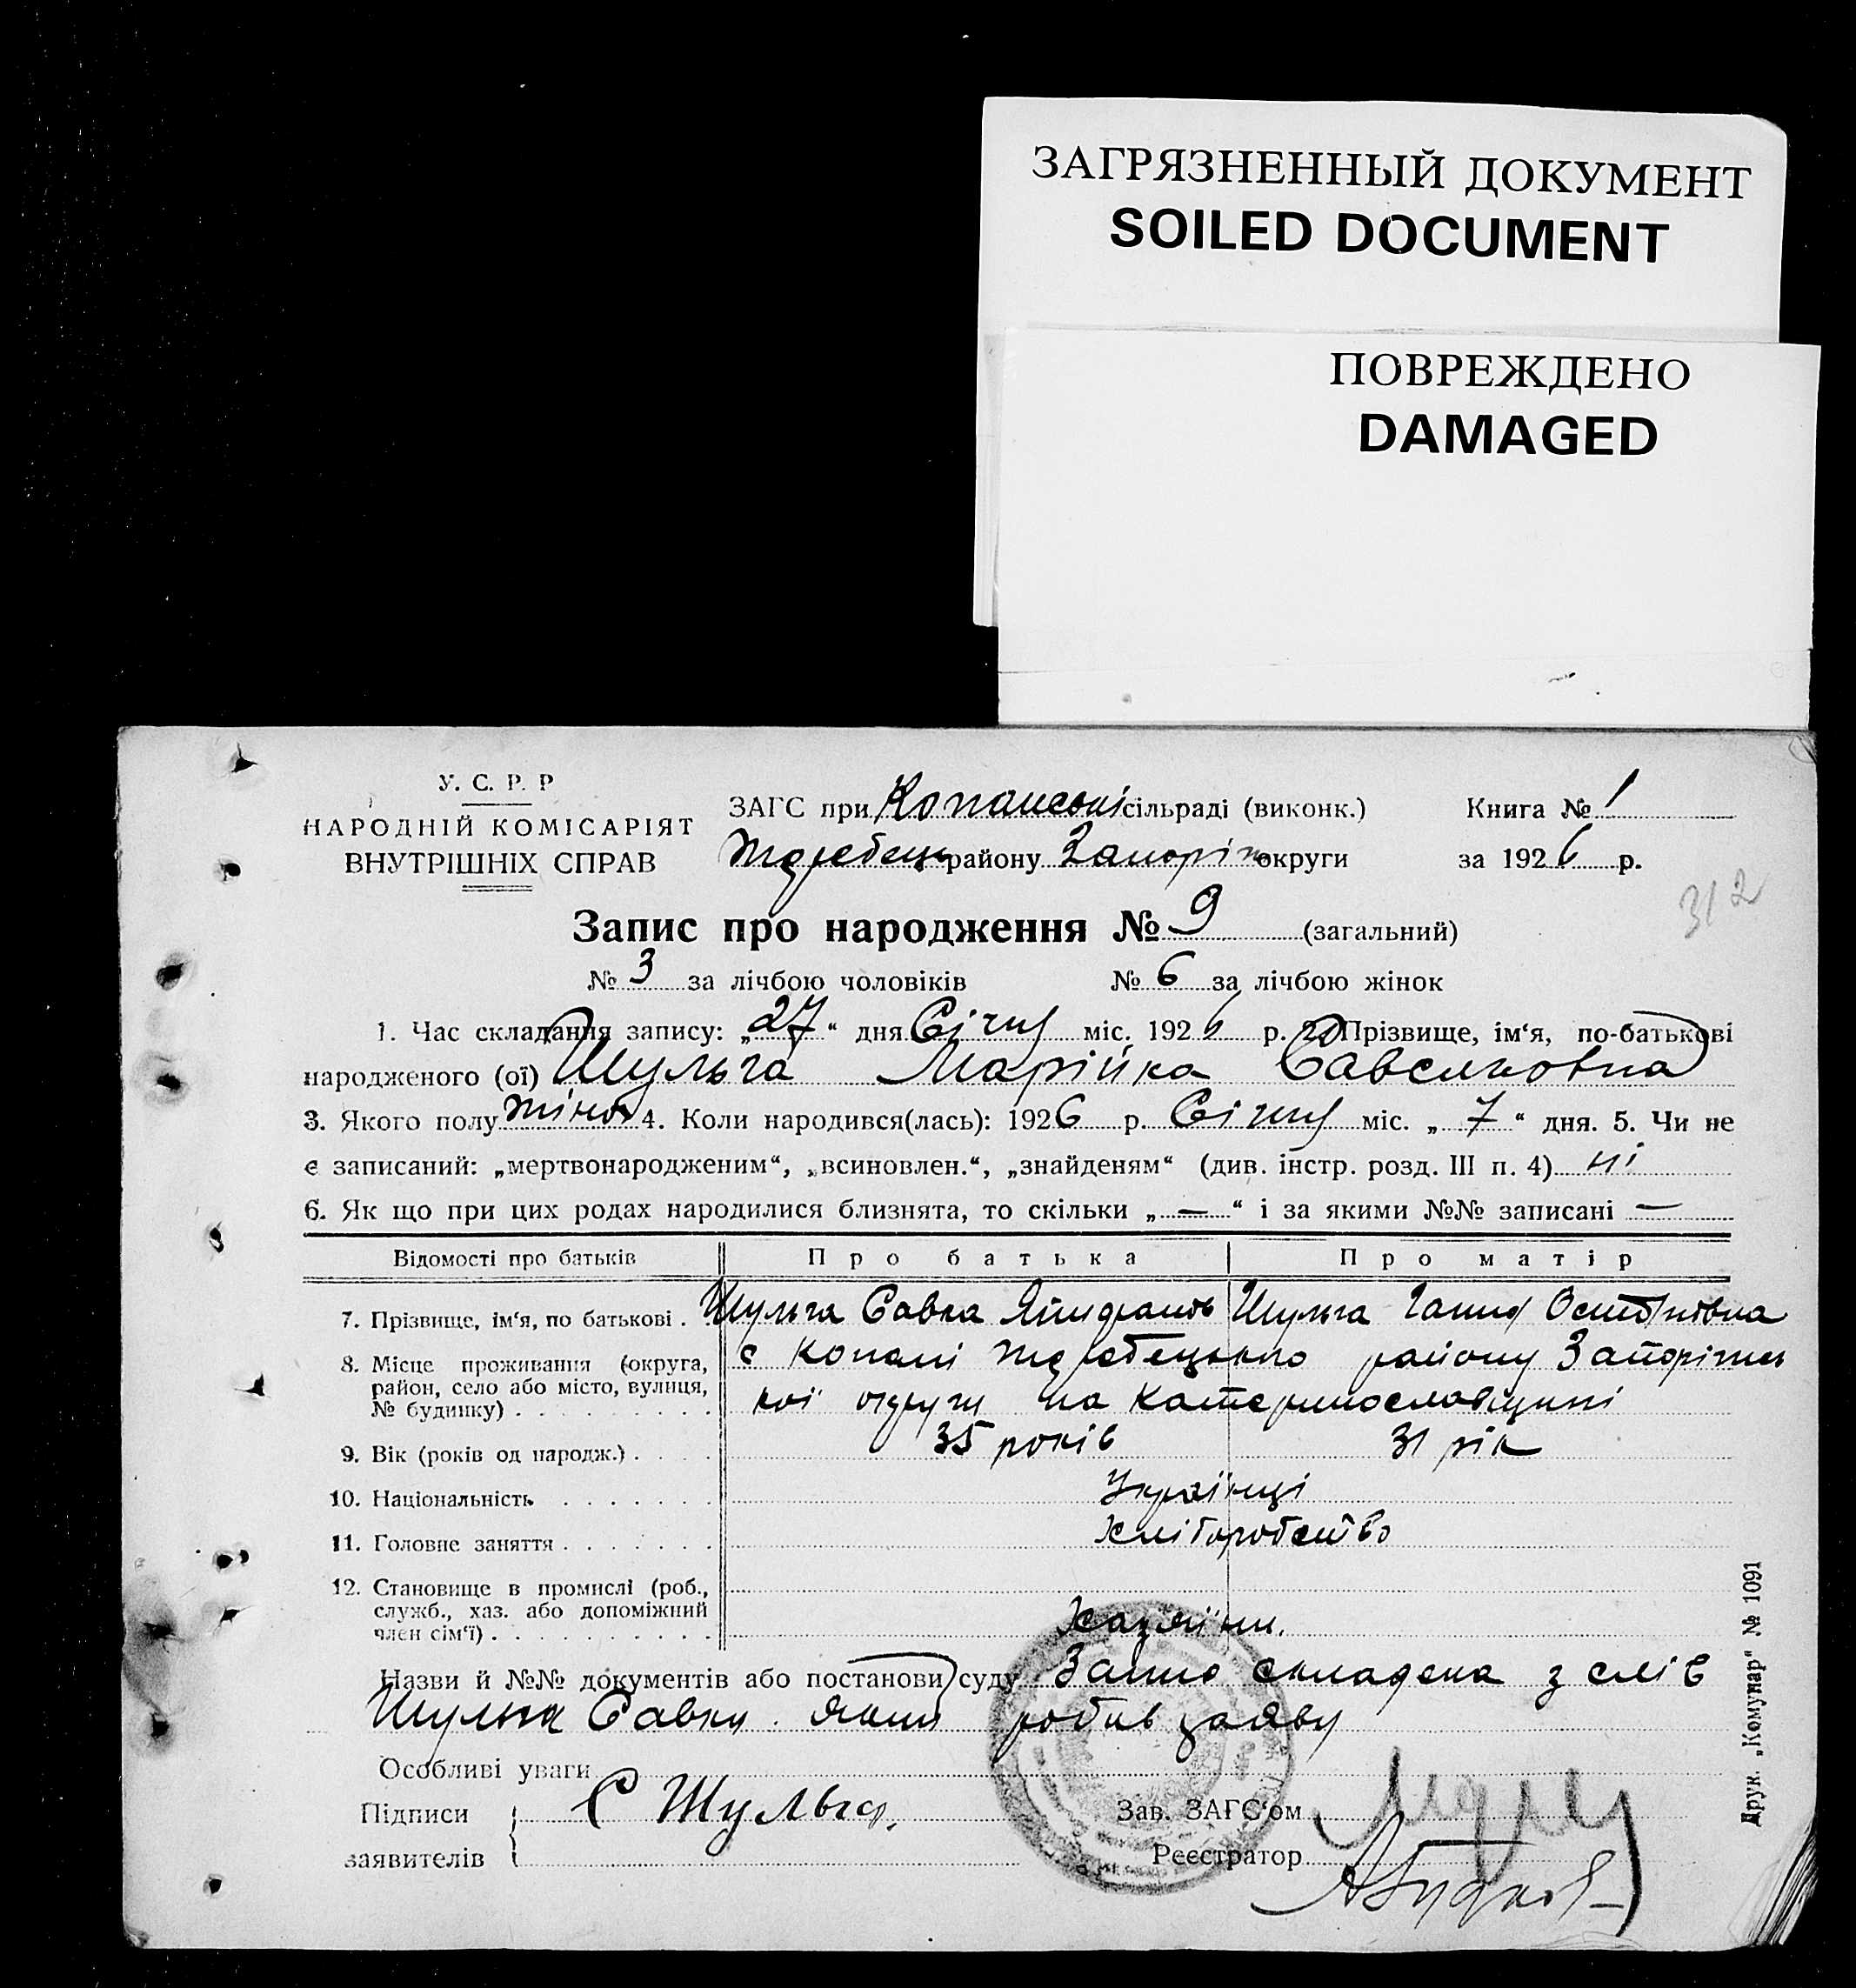 ЗАГРЯЗНЕННЫЙ ДОКУМЕНТ
SOILED DOCUMENT
ПОВРЕЖДЕНО
DAMAGED
У. С. Р. Р
НАРОДНІЙ КОМІСАРІЯТ
ВНУТРІШНІХ СПРАВ
ЗАГС при Копанські сільраді (виконк.) Книга № 1
Жеребецьк району Запоріж округи за 1926 р.
312
Запис про народження № 9 (загальний)
№ 3 за лічбою чоловіків № 6 за лічбою жінок
1. Час складання запису: „27“ дня Січня міс. 1926 р. 2. Прізвище, ім‘я, по-батькові
народженого (ої) Шульга Марійка
3. Якого полу жіноч 4. Коли народився(лась): 1926 р. Січня міс. „7“ дня. 5. Чи не
є записаний: „мертвонародженим“, „всиновлен.“, „знайденям“ (див. інстр. розд. III п. 4) ні
6. Як що при цих родах народилися близнята, то скільки „—“ і за якими №№ записані —
Відомості про батьків Про батька Про матір
7. Прізвище, ім‘я, по батькові . Шульга Савка Шульга Ганна
8. Місце проживання (округа, район, село або місто, вулиця, № будинку) . с Копані Жеребецького району Запорізь
кої округи на Катеринославщині
9. Вік (років од народж.) . 35 років 31 рік
10. Національність Українці
11. Головне заняття . Хліборобство
12. Становище в промислі (роб., служб., хаз. або допоміжний член сім‘ї) . Хазяїни.
Назви й №№ документів або постанови суду складена з слів
Шульги Савки який робив заяву
Особливі уваги
Підписи С Шульга. Зав. ЗАГС‘ом
заявителів Реєстратор
Друк. „Комунар“ № 1091